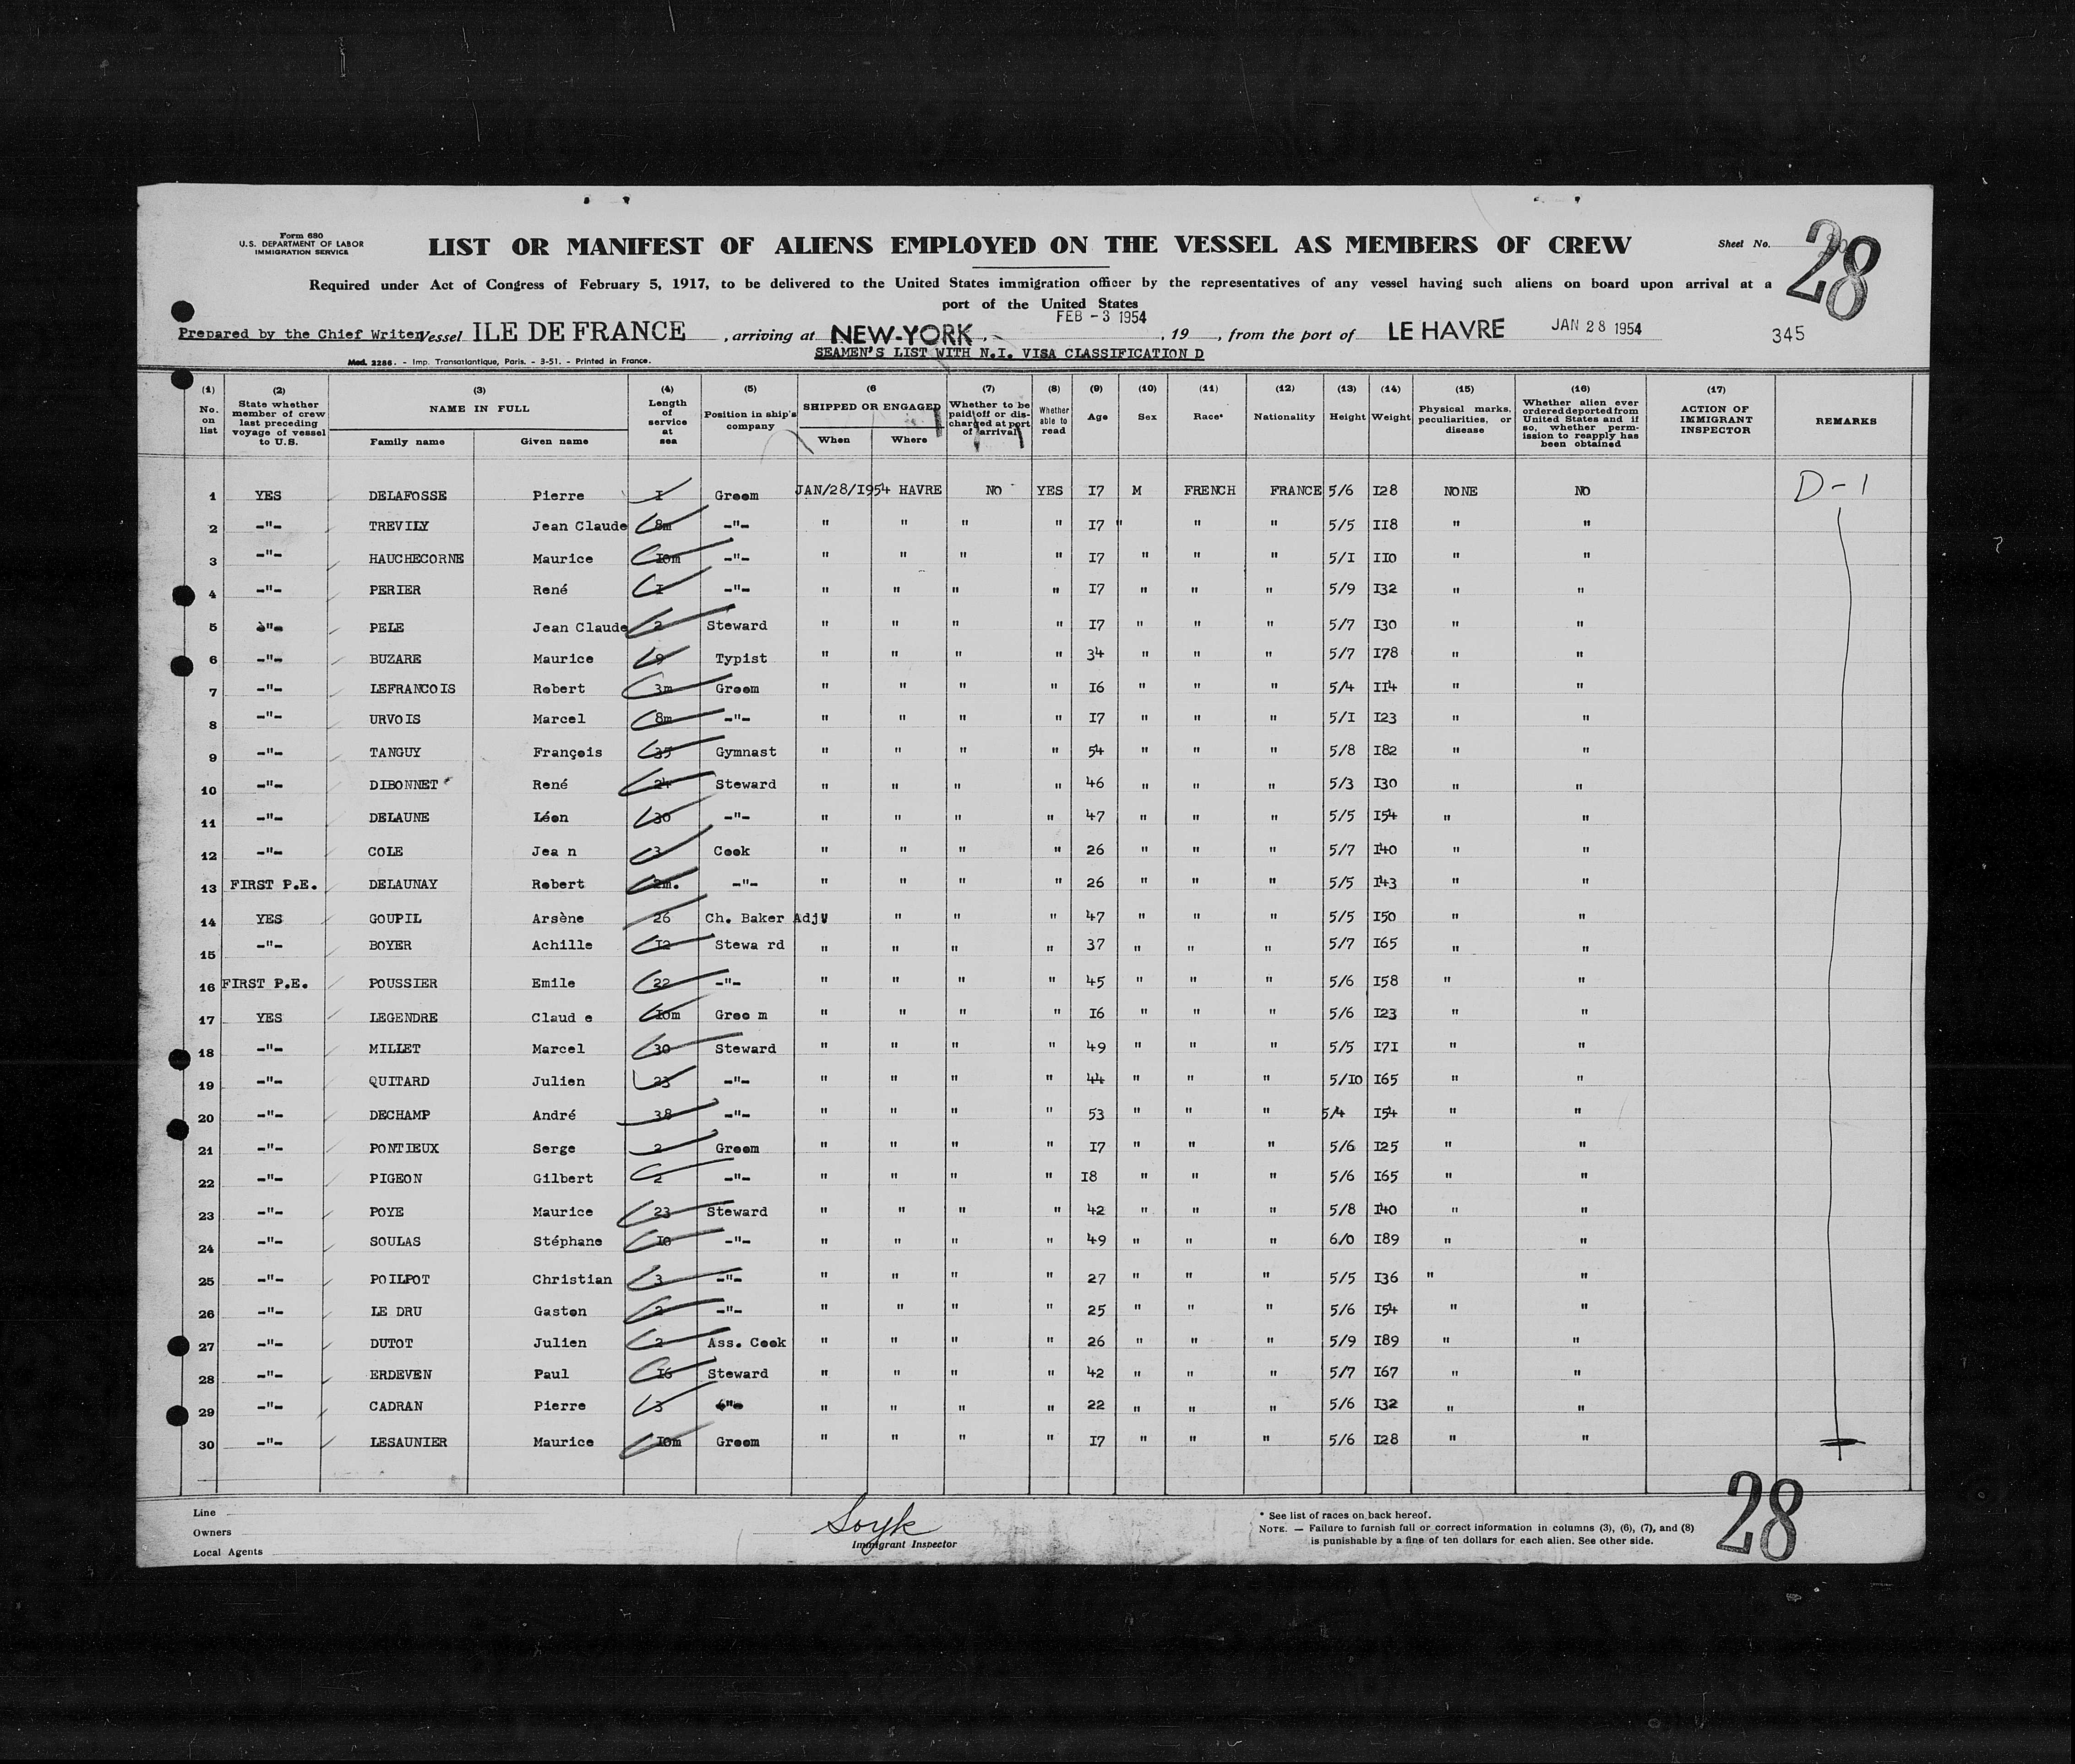 Form 680
U.S. DEPARTMENT OF LABOR
IMMIGRATION SERVICE
LIST OR MANIFEST OF ALIENS EMPLOYED ON THE VESSEL AS MEMBERS OF CREW
Sheet No.
28
Required under Act of Congress of February 5, 1917, to be delivered to the United States immigration officer by the representatives of any vessel having such aliens on board upon arrival at a
port of the United States
FEB - 3 1954
Prepared by the Chief Writer Vessel ILE DE FRANCE , arriving at NEW-YORK , 19 , from the port of LE HAVRE JAN 28 1954 345
SEAMEN'S LIST WITH N.I. VISA CLASSIFICATION D
Mod. 2286. - Imp. Transatlantique, Paris. - 3-51. - Printed in France.
(1) No. on list (2) State whether member of crew last preceding voyage of vessel to U.S. (3) NAME IN FULL Family name Given name (4) Length of service at sea (5) Position in ship's company (6 SHIPPED OR ENGAGED When Where (7) Whether to be paid off or discharged at port of arrival (8) Whether able to read (9) Age (10) Sex (11) Race* (12) Nationality (13) Height (14) Weight (15) Physical marks, peculiarities, or disease (16) Whether alien ever ordered deported from United States and if so, whether permission to reapply has been obtained (17) ACTION OF IMMIGRANT INSPECTOR REMARKS
1 YES DELAFOSSE Pierre I Groom JAN/28/I954 HAVRE NO YES I7 M FRENCH FRANCE 5/6 I28 NONE NO D-1
2 -"- TREVILY Jean Claude 8m -"- " " " " I7 " " " 5/5 II8 " "
3 -"- HAUCHECORNE Maurice I0m -"- " " " " I7 " " " 5/I II0 " "
4 -"- PERIER René I -"- " " " " I7 " " " 5/9 I32 " "
5 -"- PELE Jean Claude 2 Steward " " " " I7 " " " 5/7 I30 " "
6 -"- BUZARE Maurice 9 Typist " " " " 34 " " " 5/7 I78 " "
7 -"- LEFRANCOIS Robert 3m Groom " " " " I6 " " " 5/4 II4 " "
8 -"- URVOIS Marcel 8m -"- " " " " I7 " " " 5/I I23 " "
9 -"- TANGUY François 35 Gymnast " " " " 54 " " " 5/8 I82 " "
10 -"- DIBONNET René 24 Steward " " " " 46 " " " 5/3 I30 " "
11 -"- DELAUNE Léon 30 -"- " " " " 47 " " " 5/5 I54 " "
12 -"- COLE Jea n 3 Cook " " " " 26 " " " 5/7 I40 " "
13 FIRST P.E. DELAUNAY Robert 2m. -"- " " " " 26 " " " 5/5 I43 " "
14 YES GOUPIL Arsène 26 Ch. Baker Adj " " " " 47 " " " 5/5 I50 " "
15 -"- BOYER Achille I2 Stewa rd " " " " 37 " " " 5/7 I65 " "
16 FIRST P.E. POUSSIER Emile 22 -"- " " " " 45 " " " 5/6 I58 " "
17 YES LEGENDRE Claud e I0m Groo m " " " " I6 " " " 5/6 I23 " "
18 -"- MILLET Marcel 30 Steward " " " " 49 " " " 5/5 I7I " "
19 -"- QUITARD Julien 23 -"- " " " " 44 " " " 5/I0 I65 " "
20 -"- DECHAMP André 38 -"- " " " " 53 " " " 5/4 I54 " "
21 -"- PONTIEUX Serge 2 Groom " " " " I7 " " " 5/6 I25 " "
22 -"- PIGEON Gilbert 2 -"- " " " " I8 " " " 5/6 I65 " "
23 -"- POYE Maurice 23 Steward " " " " 42 " " " 5/8 I40 " "
24 -"- SOULAS Stéphane I0 -"- " " " " 49 " " " 6/0 I89 " "
25 -"- POILPOT Christian 3 -"- " " " " 27 " " " 5/5 I36 " "
26 -"- LE DRU Gaston 2 -"- " " " " 25 " " " 5/6 I54 " "
27 -"- DUTOT Julien 2 Ass. Cook " " " " 26 " " " 5/9 I89 " "
28 -"- ERDEVEN Paul I6 Steward " " " " 42 " " " 5/7 I67 " "
29 -"- CADRAN Pierre 3 -"- " " " " 22 " " " 5/6 I32 " "
30 -"- LESAUNIER Maurice I0m Groom " " " " I7 " " " 5/6 I28 " "
Line
Owners
Local Agents
Soyk
Immigrant Inspector
* See list of races on back hereof.
NOTE. — Failure to furnish full or correct information in columns (3), (6), (7), and (8)
is punishable by a fine of ten dollars for each alien. See other side.
28